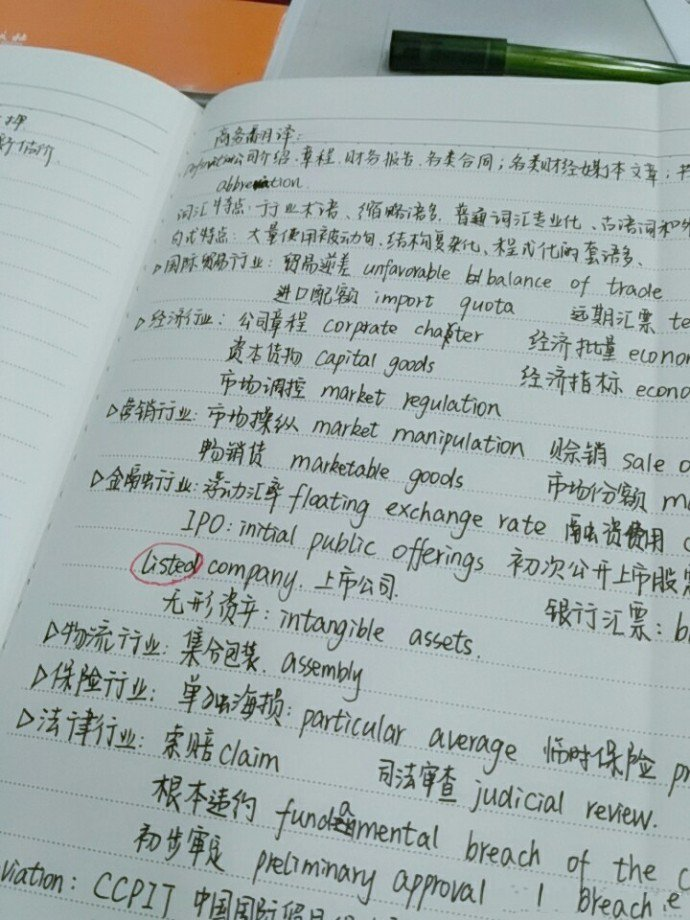 商务翻译:
公司介绍、章程、财务报告、各类合同；各类财经媒体文章；
abbreviation
词汇特点: 行业术语、缩略语多、普通词汇专业化、古语词和
句式特点: 大量使用被动句、结构复杂化、程式化的套语多、
▷国际贸易行业: 贸易逆差 unfavorable balance of trade
进口配额 import quota 远期汇票 te
▷经济行业: 公司章程 corprate charter 经济批量 econo
资本货物 capital goods 经济指标 econo
市场调控 market regulation
▷营销行业: 市场操纵 market manipulation 赊销 sale o
畅销货 marketable goods 市场份额 ma
▷金融行业: 浮动汇率 floating exchange rate 融资费用 c
IPO: initial public offerings 初次公开上市股票
listed company. 上市公司.
无形资产: intangible assets. 银行汇票: b
▷物流行业: 集合包装 assembly
▷保险行业: 单独海损: particular average 临时保险 pr
▷法律行业: 索赔 claim 司法审查 judicial review.
根本违约 fundamental breach of the c
初步审定 preliminary approval breach
viation: CCPIT 中国国际